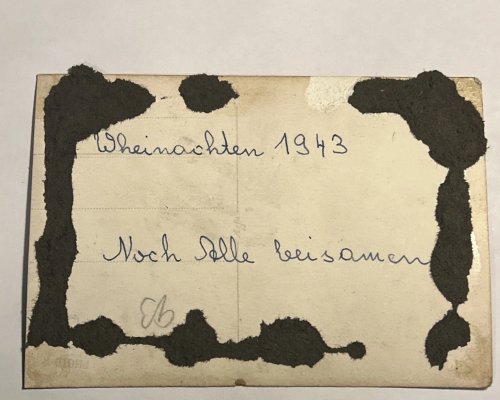 Wheinachten 1943
Noch Alle beisamen